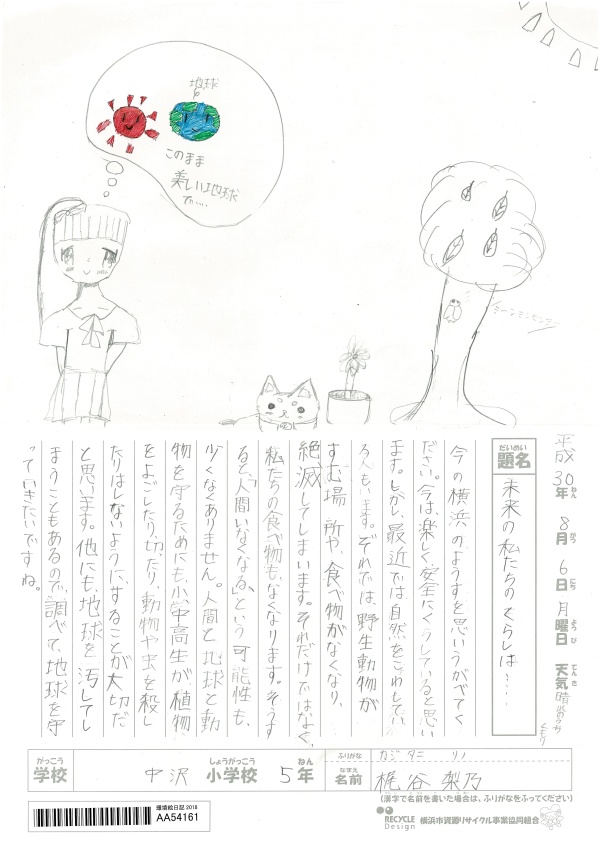 地球
このまま
美しい地球
で....
ミーンミンミンミン
平成30年 8月 6日 月曜日 天気 晴れのちくもり
題名 未来の私たちのくらしは…
今の横浜のようすを思いうかべてく
ださい。今は、楽しく、安全にくらしていると思い
ます。しかし、最近では自然をこわしてい
る人もいます。それでは、野生動物が
すむ場所や、食べ物がなくなり、
絶滅してしまいます。それだけではなく、
私たちの食べ物も、なくなります。そうす
ると「人間いなくなる」という可能性も、
少くなくありません。人間と地球と動
物を守るためにも、小中高生が植物
をよごしたり、切ったり、動物や虫を殺し
たりはしないように、することが大切だ
と思います。他にも、地球を汚してし
まうこともあるので、調べて、地球を守
っていきたいですね。
がっこう 学校 中沢 しょうがっこう 小学校 5 ねん 年
ふりがな カジタニ リノ
なまえ 名前 梶谷 梨乃
(漢字で名前を書いた場合は、ふりがなをふってください)
環境絵日記 2018
AA54161
RECYCLE Design 横浜市資源リサイクル事業協同組合